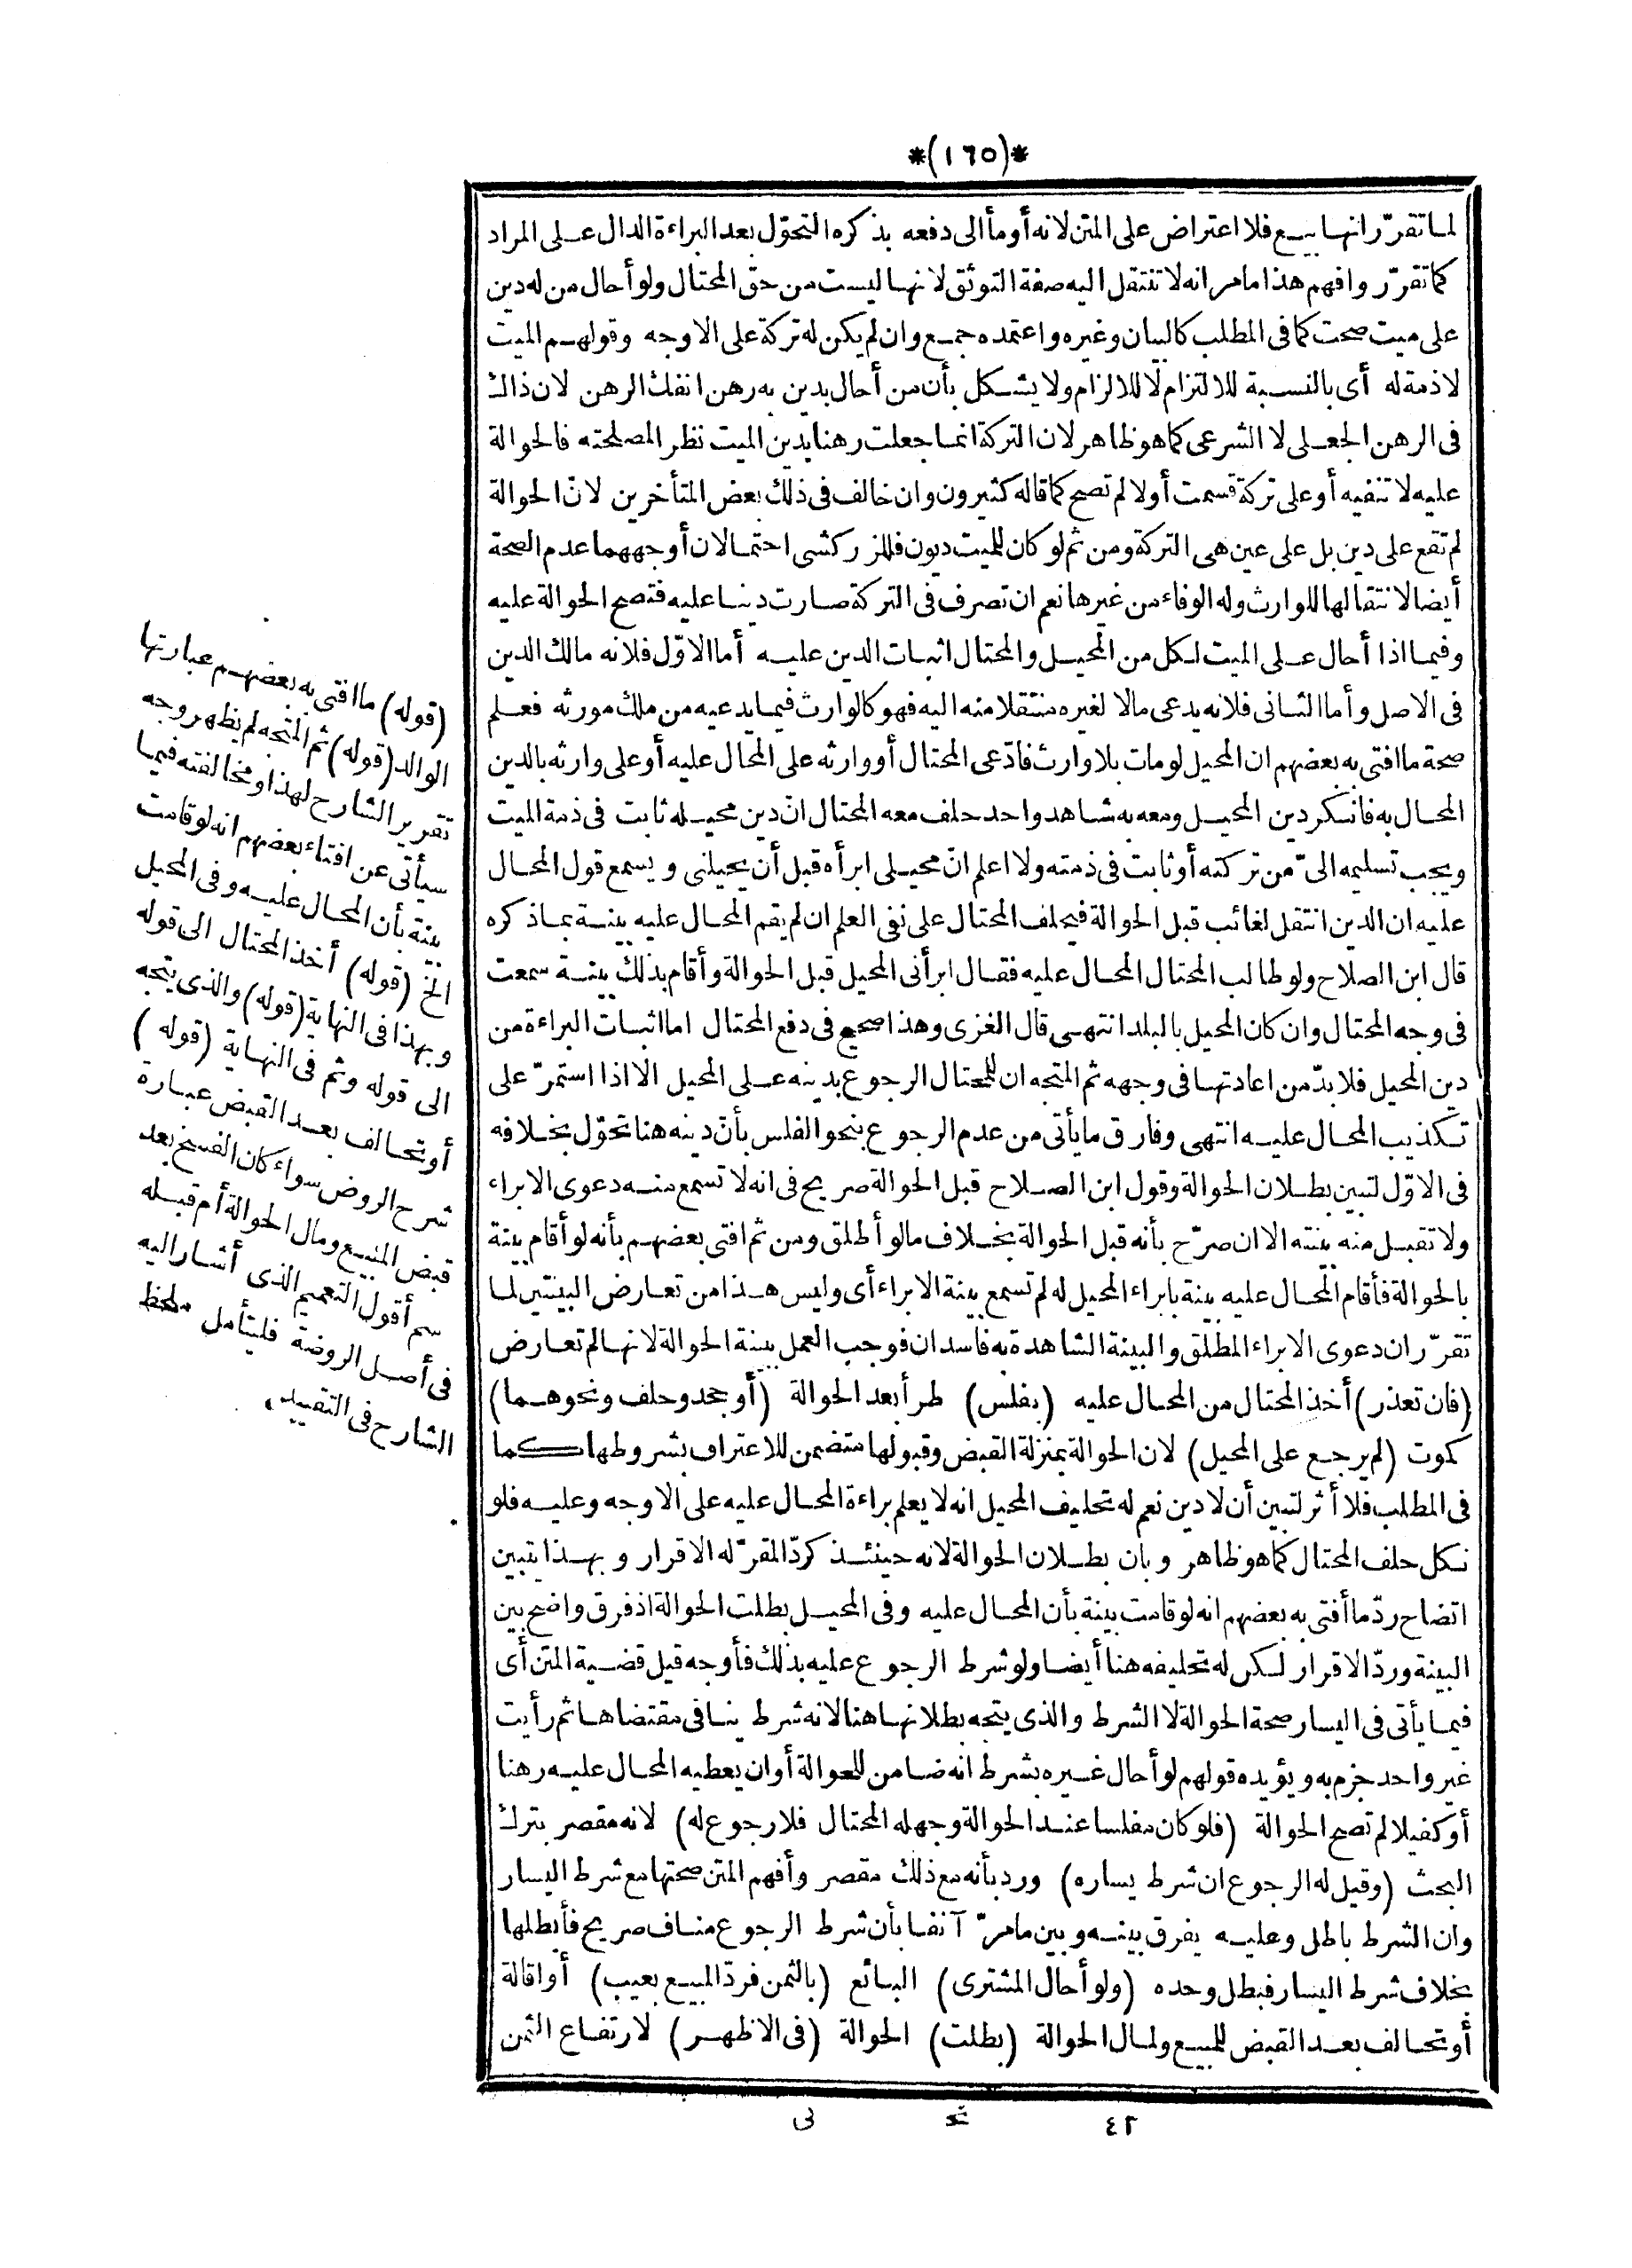 *(١٦٥)*
لما تقرّر انها بيع فلا اعتراض على المتن لانه أومأ الى دفعه بذكره التحوّل بعد البراءة الدال على المراد
كما تقرّر وافهم هذا مامر انه لا تنتقل اليه صفة التوثق لانها ليست من حق المحتال ولو أحال من له دين
على ميت صحت كما فى المطلب كالبيان وغيره واعتمده جمع وان لم يكن له تركة على الاوجه وقولهم الميت
لا ذمة له أى بالنسبة للالتزام لا للالزام ولا يشكل بأن من أحال بدين به رهن انفك الرهن لان ذاك
فى الرهن الجعلى لا الشرعى كما هو ظاهر لان التركة انما جعلت رهنا بدين الميت نظر المصلحته فالحوالة
عليه لا تنفيه أو على تركة قسمت أولا لم تصح كما قاله كثيرون وان خالف فى ذلك بعض المتأخرين لانّ الحوالة
لم تقع على دين بل على عين هى التركة ومن ثم لو كان للميت ديون فللزركشى احتمالان أوجههما عدم الصحة
أيضا لانتقالها للوارث وله الوفاء من غيرها نعم ان تصرف فى التركة صارت دينا عليه فتصح الحوالة عليه
وفيما اذا أحال على الميت لكل من المحيل والمحتال اثبات الدين عليه أما الاوّل فلانه مالك الدين
فى الاصل وأما الثانى فلانه يدعى مالا لغيره منتقلا منه اليه فهو كالوارث فيما يدعيه من ملك مورثه فعلم
صحة ما افتى به بعضهم ان المحيل لو مات بلا وارث فادّعى المحتال أو وارثه على المحال عليه أو على وارثه بالدين
المحال به فانكر دين المحيل ومعه به شاهد واحد حلف معه المحتال انّ دين محيله ثابت فى ذمة الميت
ويجب تسليمه الىّ من تركته أو ثابت فى ذمته ولا اعلم انّ محيلى ابرأه قبل أن يحيلنى ويسمع قول المحال
عليه ان الدين انتقل لغائب قبل الحوالة فيحلف المحتال على نفى العلم ان لم يقم المحال عليه بينة بما ذكره
قال ابن الصلاح ولو طالب المحتال المحال عليه فقال ابرأنى المحيل قبل الحوالة وأقام بذلك بينة سمعت
فى وجه المحتال وان كان المحيل بالبلد انتهى قال الغزى وهذا صحيح فى دفع المحتال اما اثبات البراءة من
دين المحيل فلا بدّ من اعادتها فى وجهه ثم المتجه ان للمحتال الرجوع بدينه على المحيل الا اذا استمرّ على
تكذيب المحال عليه انتهى وفارق ما يأتى من عدم الرجوع بنحو الفلس بأنّ دينه هنا تحوّل بخلافه
فى الاوّل لتبين بطلان الحوالة وقول ابن الصلاح قبل الحوالة صريح فى انه لا تسمع منه دعوى الابراء
ولا تقبل منه بينته الا ان صرّح بأنه قبل الحوالة بخلاف مالو أطلق ومن ثم افتى بعضهم بأنه لو أقام بينة
بالحوالة فأقام المحال عليه بينة بابراء المحيل له لم تسمع بينة الابراء أى وليس هذا من تعارض البينتين لما
تقرّر ان دعوى الابراء المطلق والبينة الشاهدة به فاسدان فوجب العمل ببينة الحوالة لانها لم تعارض
(فان تعذر) أخذ المحتال من المحال عليه (بفلس) طرأ بعد الحوالة (أو جحد وحلف ونحوهما)
كموت (لم يرجع على المحيل) لان الحوالة بمنزلة القبض وقبولها متضمن للاعتراف بشروطها كما
فى المطلب فلا أثر لتبين أن لا دين نعم له تحليف المحيل انه لا يعلم براءة المحال عليه على الاوجه وعليه فلو
نكل حلف المحتال كما هو ظاهر وبان بطلان الحوالة لانه حينئذ كردّ المقرّ له الاقرار وبهذا يتبين
اتضاح ردّ ما أفتى به بعضهم انه لو قامت بينة بأن المحال عليه وفى المحيل بطلت الحوالة اذ فرق واضح بين
البينة وردّ الاقرار لكن له تحليفه هنا أيضا ولو شرط الرجوع عليه بذلك فأوجه قيل قضية المتن أى
فيما يأتى فى اليسار صحة الحوالة لا الشرط والذى يتجه بطلانها هنا لانه شرط ينافى مقتضاها ثم رأيت
غير واحد جزم به ويؤيده قولهم لو أحال غيره بشرط انه ضامن للحوالة أو ان يعطيه المحال عليه رهنا
أو كفيلا لم تصح الحوالة (فلو كان مفلسا عند الحوالة وجهله المحتال فلا رجوع له) لانه مقصر بترك
البحث (وقيل له الرجوع ان شرط يساره) ورد بأنه مع ذلك مقصر وأفهم المتن صحتها مع شرط اليسار
وان الشرط باطل وعليه يفرق بينه وبين مامرّ آنفا بأن شرط الرجوع مناف صريح فأبطلها
بخلاف شرط اليسار فبطل وحده (ولو أحال المشترى) البائع (بالثمن فردّ المبيع بعيب) أو اقالة
أو تحالف بعد القبض للمبيع ولمال الحوالة (بطلت) الحوالة (فى الاظهر) لارتفاع الثمن
(قوله) ما افتى به بعضهم عبارتها
الوالد (قوله) ثم المتجه لم يظهر وجه
تقرير الشارح لهذا ومخالفته فيما
سيأتى عن افتاء بعضهم انه لو قامت
بينة بأن المحال عليه وفى المحيل
الخ (قوله) أخذ المحتال الى قوله
وبهذا فى النهاية (قوله) والذى يتجه
الى قوله وثم فى النهاية (قوله)
أو تحالف بعد القبض عبارة
شرح الروض سواء كان الفسخ بعد
قبض المبيع ومال الحوالة أم قبله
سم أقول التعميم الذى أشار اليه
فى أصل الروضة فليتأمل ملحظ
الشارح فى التقييد
٤٢ نى